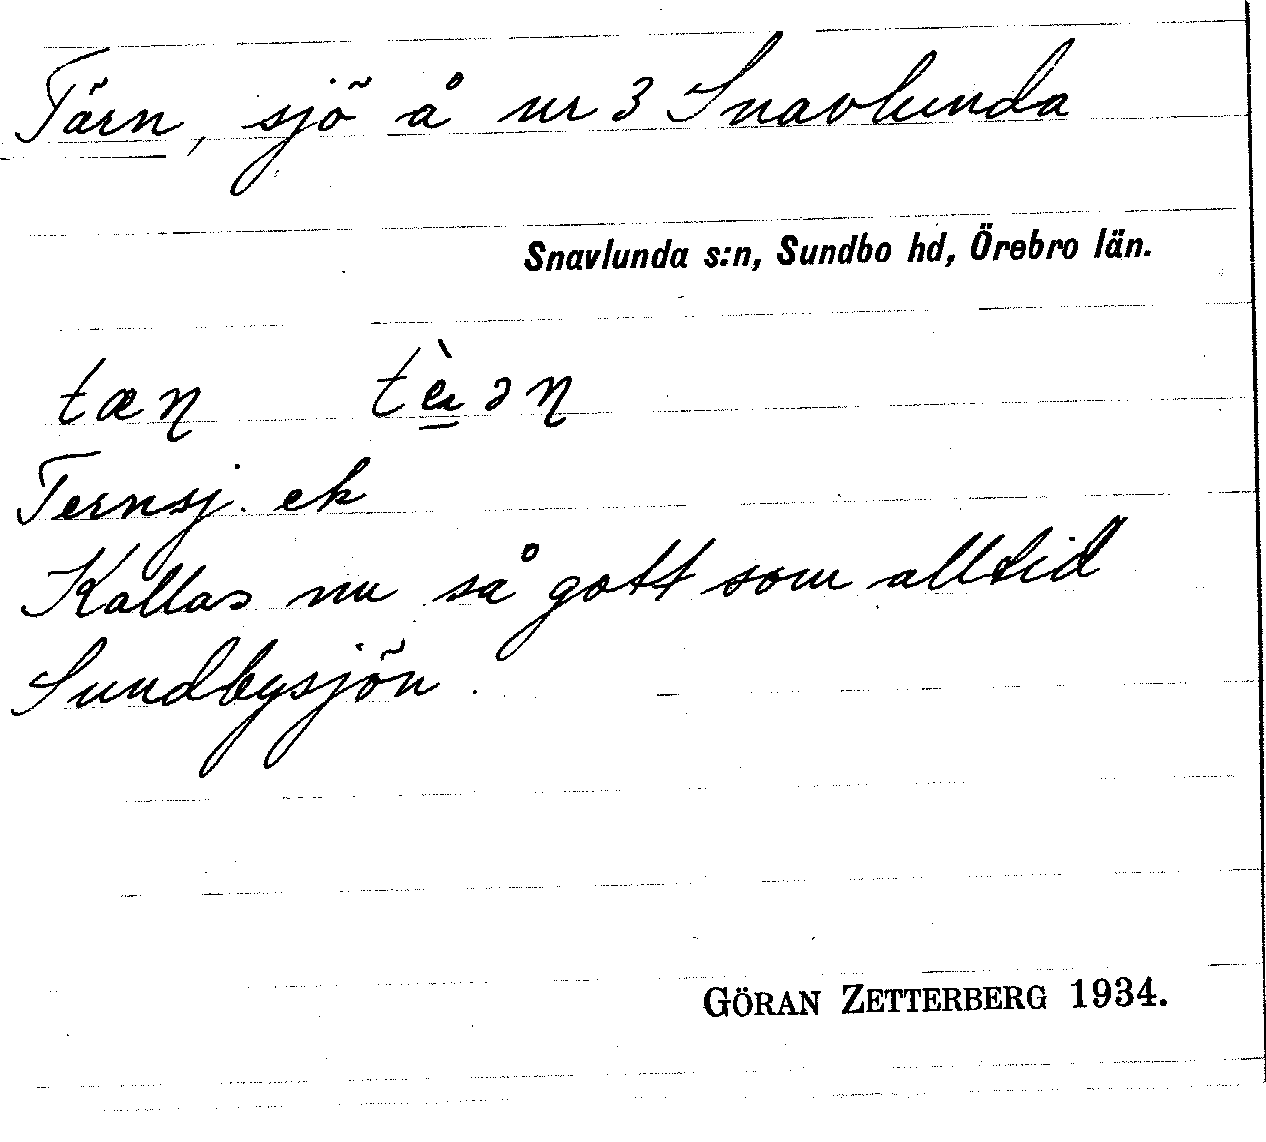 Tärn, sjö å nr 3 Snavlunda
Snavlunda s:n, Sundbo hd, Örebro län.
tæɳ
Ternsj. ek
Kallas nu så gott som alltid
Sundbysjön.
GÖRAN ZETTERBERG 1934.